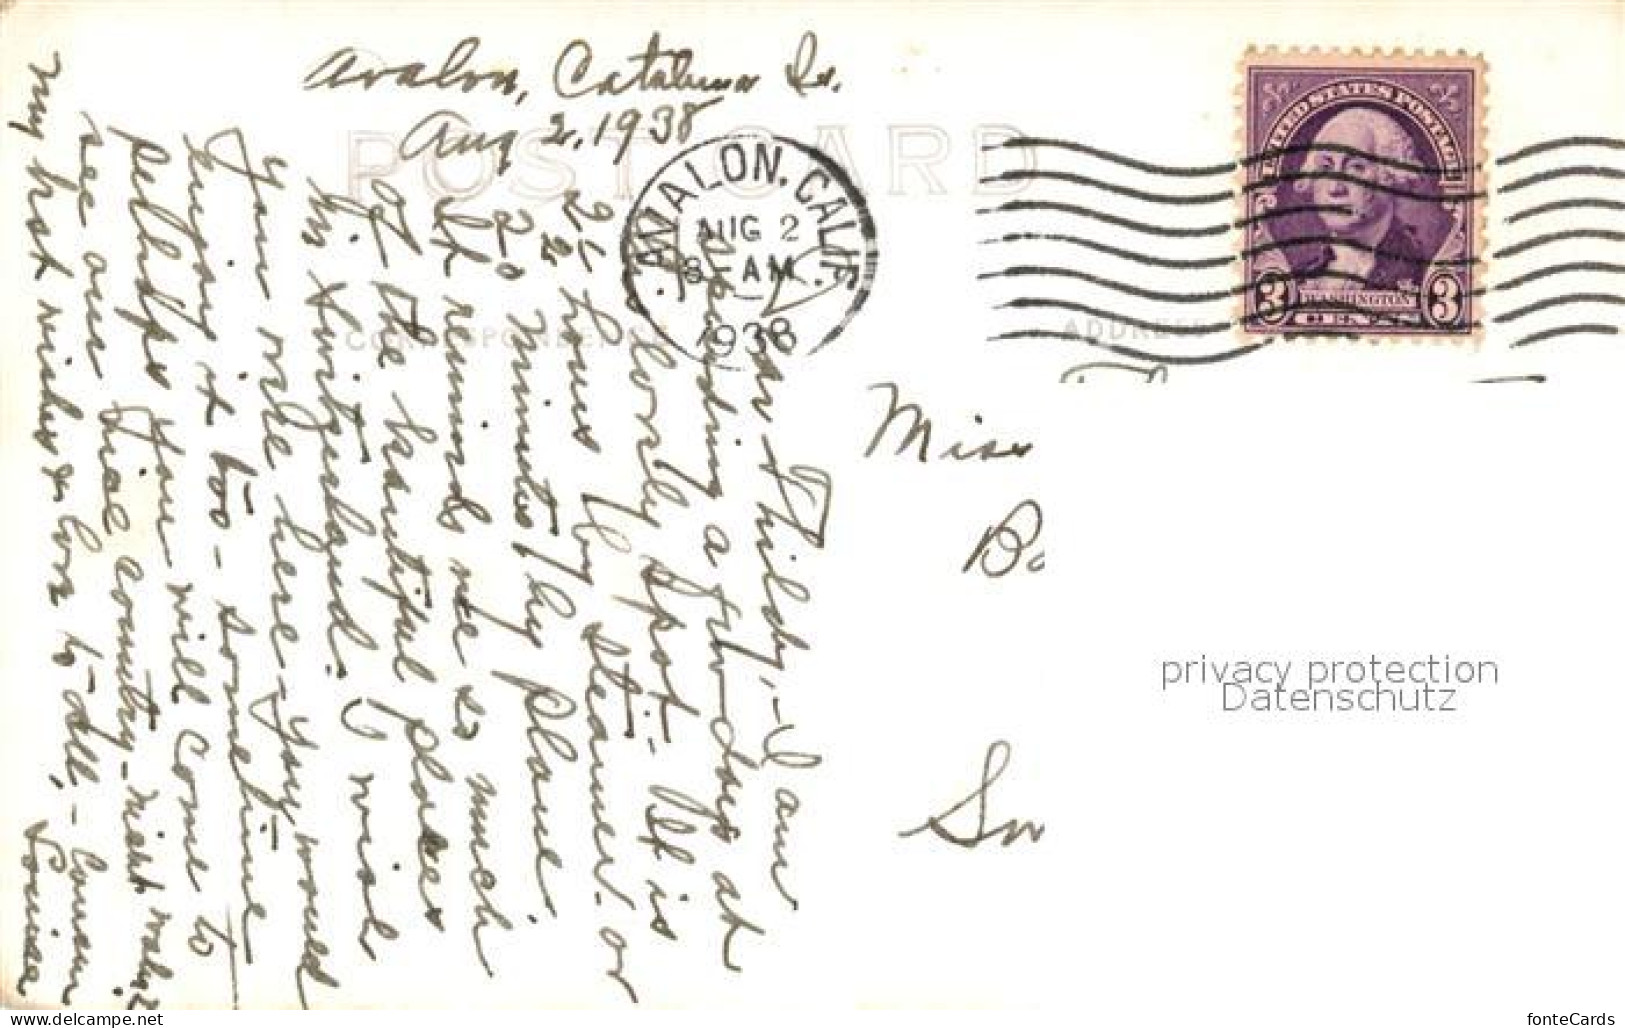 Avalon, Catalina Is.
Aug 2, 1938
POST CARD
AVALON, CALIF.
AUG 2
8 - AM
1938
UNITED STATES POSTAGE
3 WASHINGTON 3
CORRESPONDENCE
ADDRESS
I am
spending a few days at
this lovely spot - It is
2 1/2 hours by steamer or
20 minutes by plane.
It reminds me so much
of the beautiful places
in Switzerland. I wish
you were here - You would
enjoy it too - sometime
perhaps you will come to
see our fine country -
My best wishes & love to all, -
Louisa
Miss
Ba
Sw
privacy protection
Datenschutz
www.delcampe.net
fonteCards